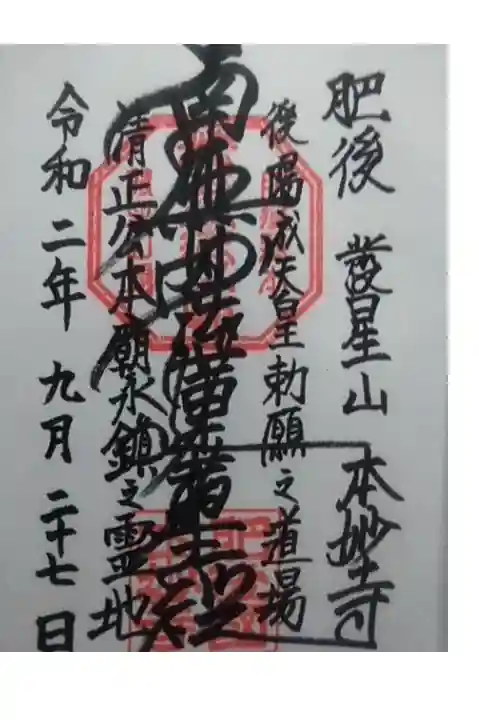 肥後 發星山 本妙寺
後陽成天皇勅願之道場
南無妙法蓮華経
清正公本廟永鎮之霊地
令和二年 九月 二十七日